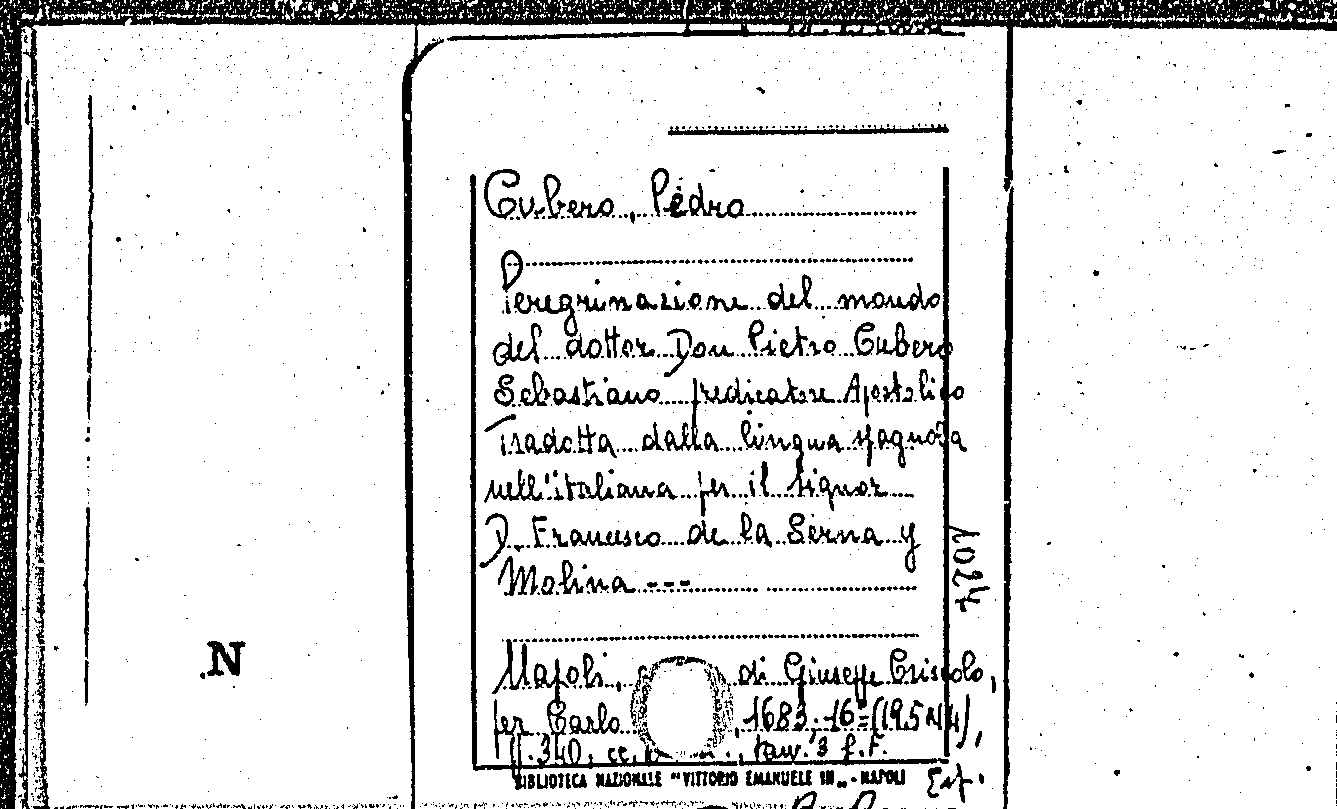 Cubero, Pedro
Peregrinazione del mondo
del dottor Don Pietro Cubero
Sebastiano predicatore Apostolico
Tradotta dalla lingua spagnola
nell'italiana per il signor
D. Francesco de la Serna y
Molina ---
Napoli, di Giuseppe Criscolo,
per Carlo , 1683, 16=(19,5
pp. 340, cc. , tav. 3 f.f.
BIBLIOTECA NAZIONALE "VITTORIO EMANUELE III„ - NAPOLI
N